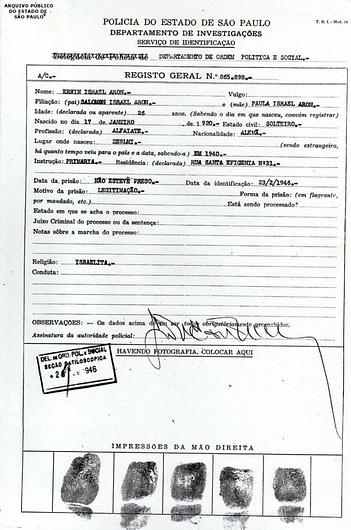 ARQUIVO PÚBLICO
DO ESTADO DE
SÃO PAULO
POLICIA DO ESTADO DE SÃO PAULO
T. D. I. - Mod. 18
DEPARTAMENTO DE INVESTIGAÇÕES
SERVIÇO DE IDENTIFICAÇÃO
DEPARTAMENTO DE ORDEM POLITICA E SOCIAL.-
A/C.-
REGISTO GERAL N.º 865.898.-
Nome: ERWIN ISRAEL ARON.- Vulgo:
Filiação: (pai) SALOMON ISRAEL ARON.- e (mãe) PAULA ISRAEL ARON.-
Idade: (declarada ou aparente) 26 anos. (Sabendo o dia em que nasceu, convém registrar)
Nascido no dia 17 de JANEIRO de 1.920.- Estado civil: SOLTEIRO.-
Profissão: (declarada) ALFAIATE.- Nacionalidade: ALEMÃ.-
Lugar onde nasceu: (sendo estrangeiro,
há quanto tempo veiu para o país e a data, sabendo-a) EM 1940.-
Instrução: PRIMARIA.- Residência: (declarada) RUA SANTA EFIGENIA Nº31.-
Data da prisão: NÃO ESTEVE PRESO.- Data da identificação: 23/2/1946.-
Motivo da prisão: LEGITIMAÇÃO.- Forma da prisão: (em flagrante,
por mandado, etc.) Está sendo processado?
Estado em que se acha o processo:
Juizo Criminal do processo ou da sentença:
Notas sôbre a marcha do processo:
Religião: ISRAELITA.-
Conduta:
OBSERVAÇÕES: — Os dados acima devem ser todos obrigatòriamente preenchidos.
Assinatura da autoridade policial:
HAVENDO FOTOGRAFIA, COLOCAR AQUI
DEL. DE ORD. POL. E SOCIAL
SEÇÃO DATILOSCOPICA
1946
IMPRESSÕES DA MÃO DIREITA